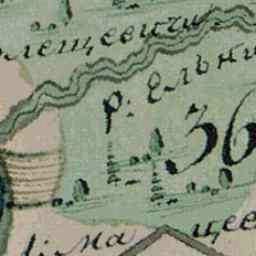 лещеевичи
р: Ельни
36
:ма
щее